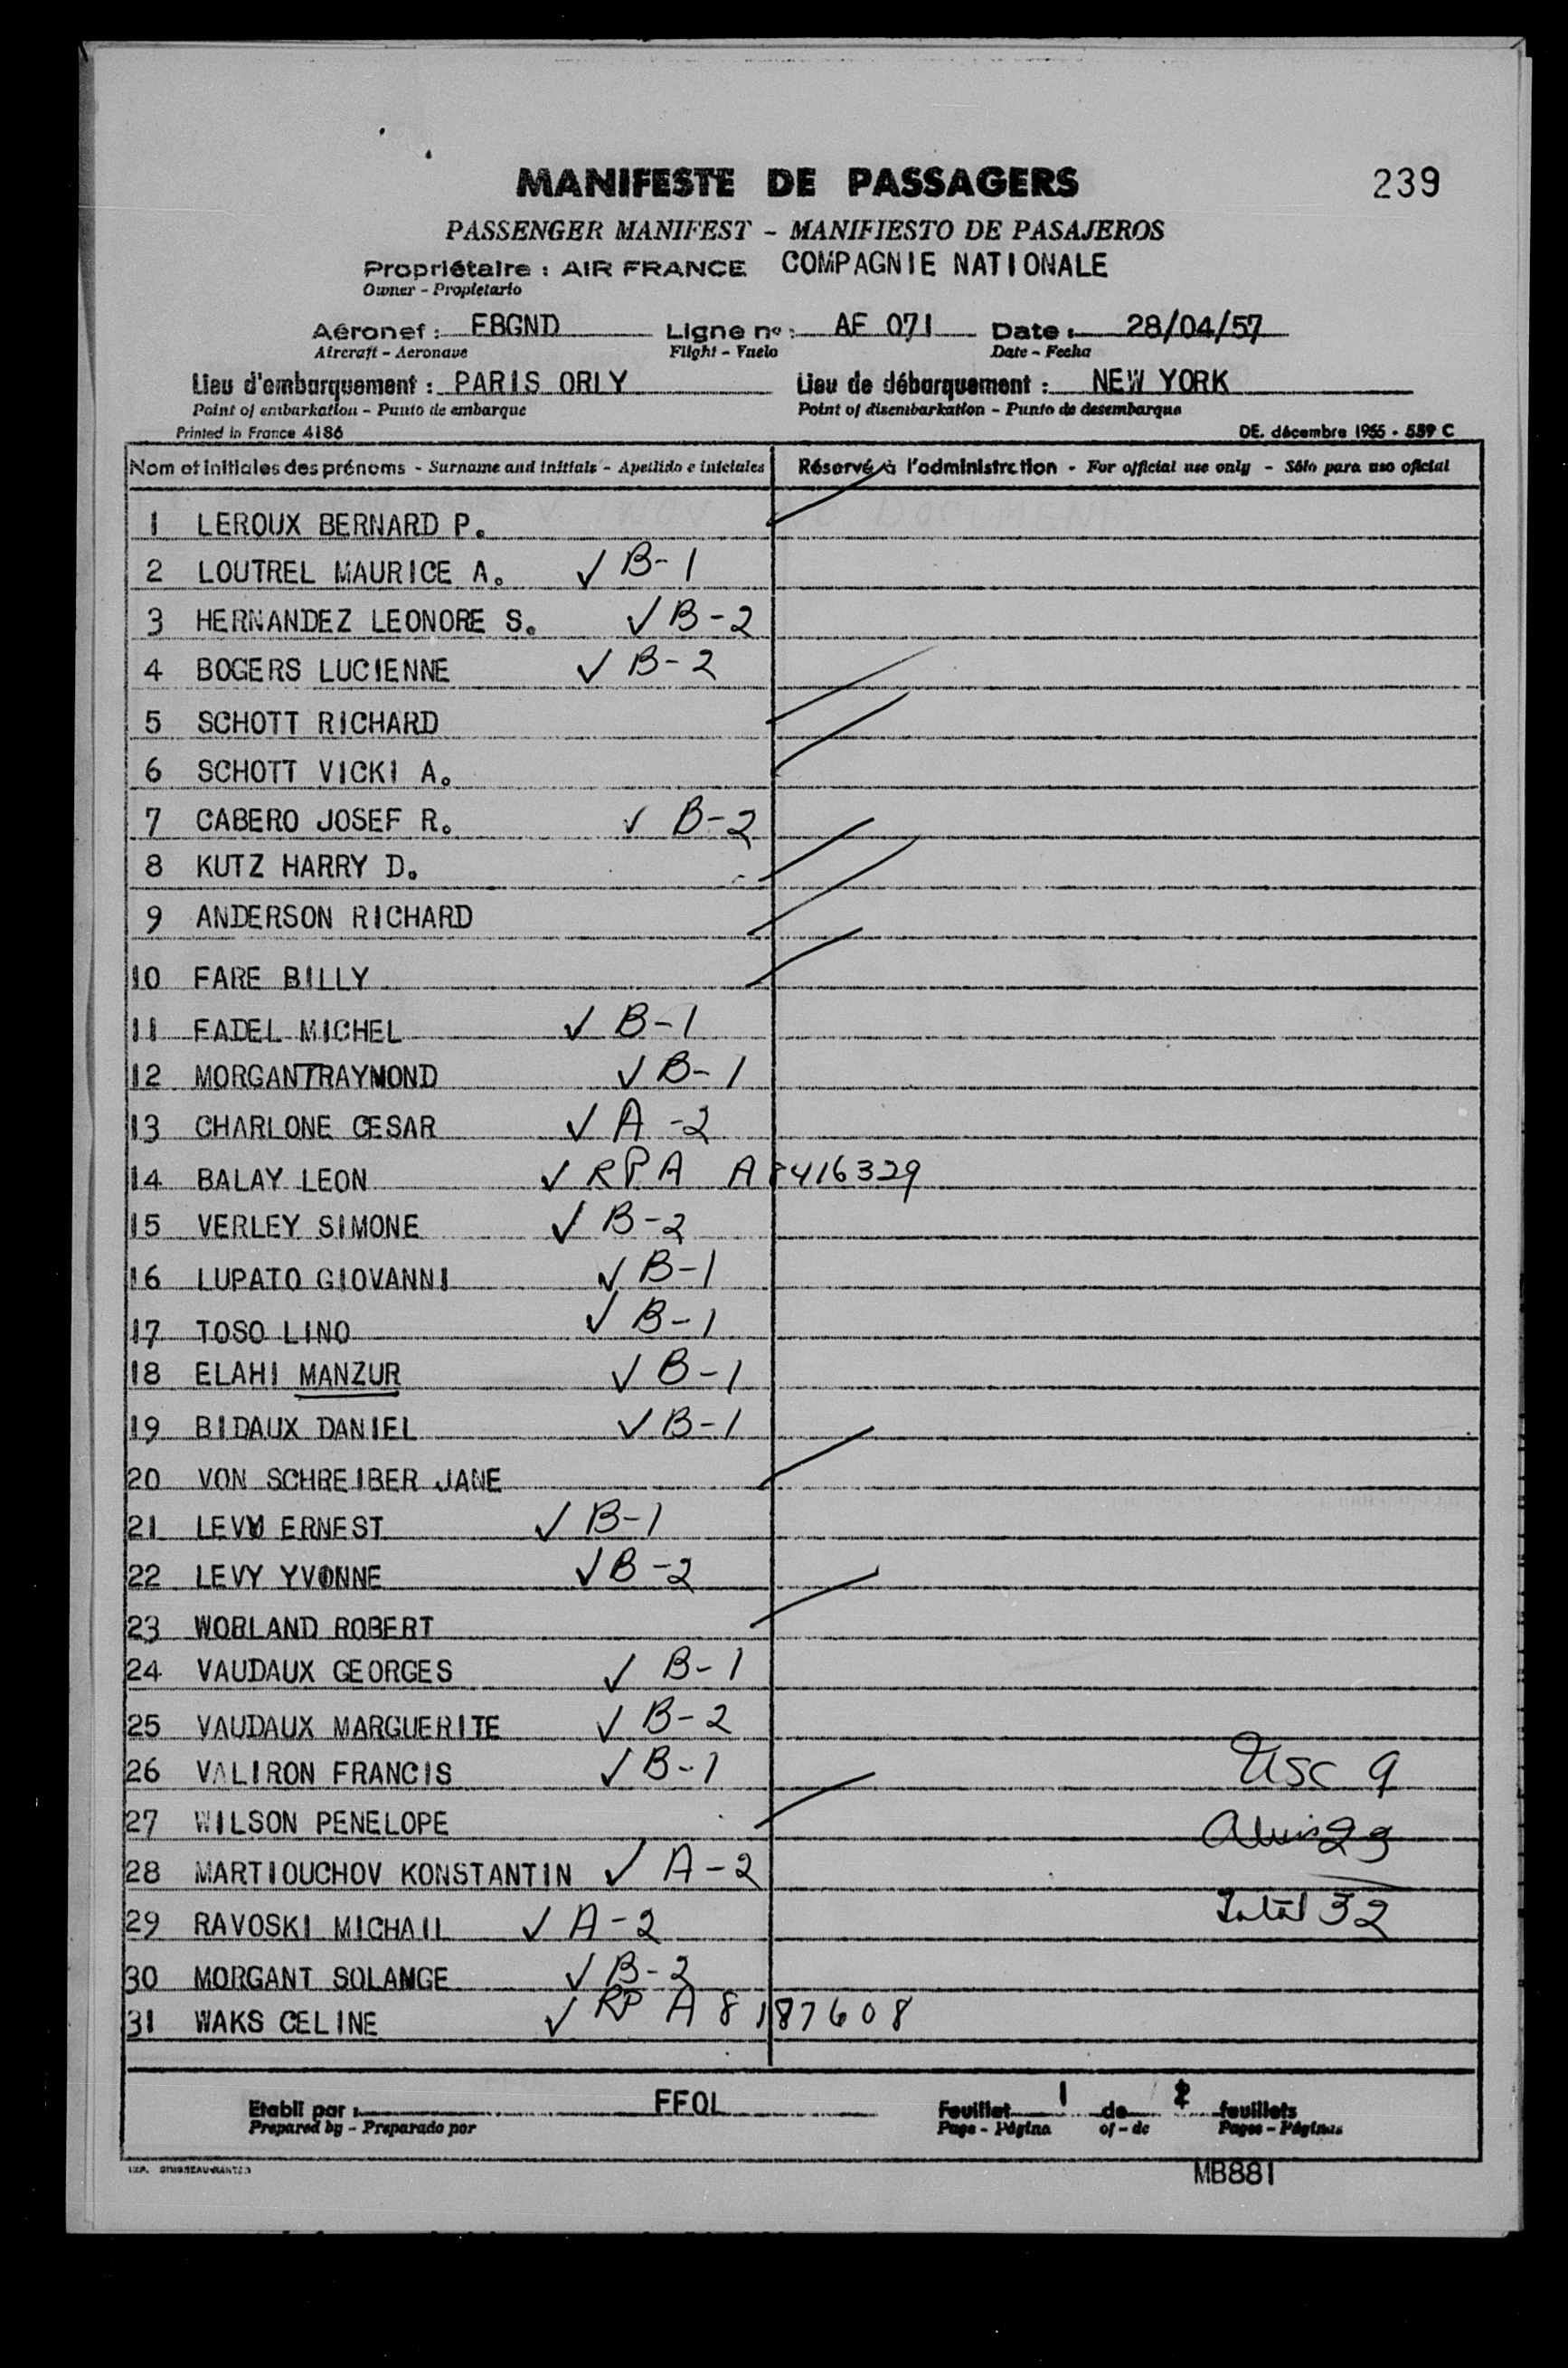 MANIFESTE DE PASSAGERS 239
PASSENGER MANIFEST - MANIFIESTO DE PASAJEROS
Propriétaire : AIR FRANCE COMPAGNIE NATIONALE
Owner - Propietario
Aéronef : FBGND Ligne nº : AF 071 Date : 28/04/57
Aircraft - Aeronave Flight - Vuelo Date - Fecha
Lieu d'embarquement : PARIS ORLY Lieu de débarquement : NEW YORK
Point of embarkation - Punto de embarque Point of disembarkation - Punto de desembarque
Printed in France 4186 DE. décembre 1955 - 559 C
Nom et initiales des prénoms - Surname and initials - Apellido e iniciales Réservé à l'administration - For official use only - Sólo para uso oficial
1 LEROUX BERNARD P.
2 LOUTREL MAURICE A. ✓ B-1
3 HERNANDEZ LEONORE S. ✓ B-2
4 BOGERS LUCIENNE ✓ B-2
5 SCHOTT RICHARD
6 SCHOTT VICKI A.
7 CABERO JOSEF R. ✓ B-2
8 KUTZ HARRY D.
9 ANDERSON RICHARD
10 FARE BILLY
11 FADEL MICHEL ✓ B-1
12 MORGANTRAYMOND ✓ B-1
13 CHARLONE CESAR ✓ A-2
14 BALAY LEON ✓ RPA
15 VERLEY SIMONE ✓ B-2
16 LUPATO GIOVANNI ✓ B-1
17 TOSO LINO ✓ B-1
18 ELAHI MANZUR ✓ B-1
19 BIDAUX DANIEL ✓ B-1
20 VON SCHREIBER JANE
21 LEVY ERNEST ✓ B-1
22 LEVY YVONNE ✓ B-2
23 WORLAND ROBERT
24 VAUDAUX GEORGES ✓ B-1
25 VAUDAUX MARGUERITE ✓ B-2
26 VALIRON FRANCIS ✓ B-1 USC 9
27 WILSON PENELOPE Aliens 23
28 MARTIOUCHOV KONSTANTIN ✓ A-2
29 RAVOSKI MICHAIL ✓ A-2 Total 32
30 MORGANT SOLANGE ✓ B-2
31 WAKS CELINE ✓ RP A 8187608
Etabli par : FFOL Feuillet 1 de feuillets
Prepared by - Preparado por Page - Página of - de Pages - Páginas
MB881